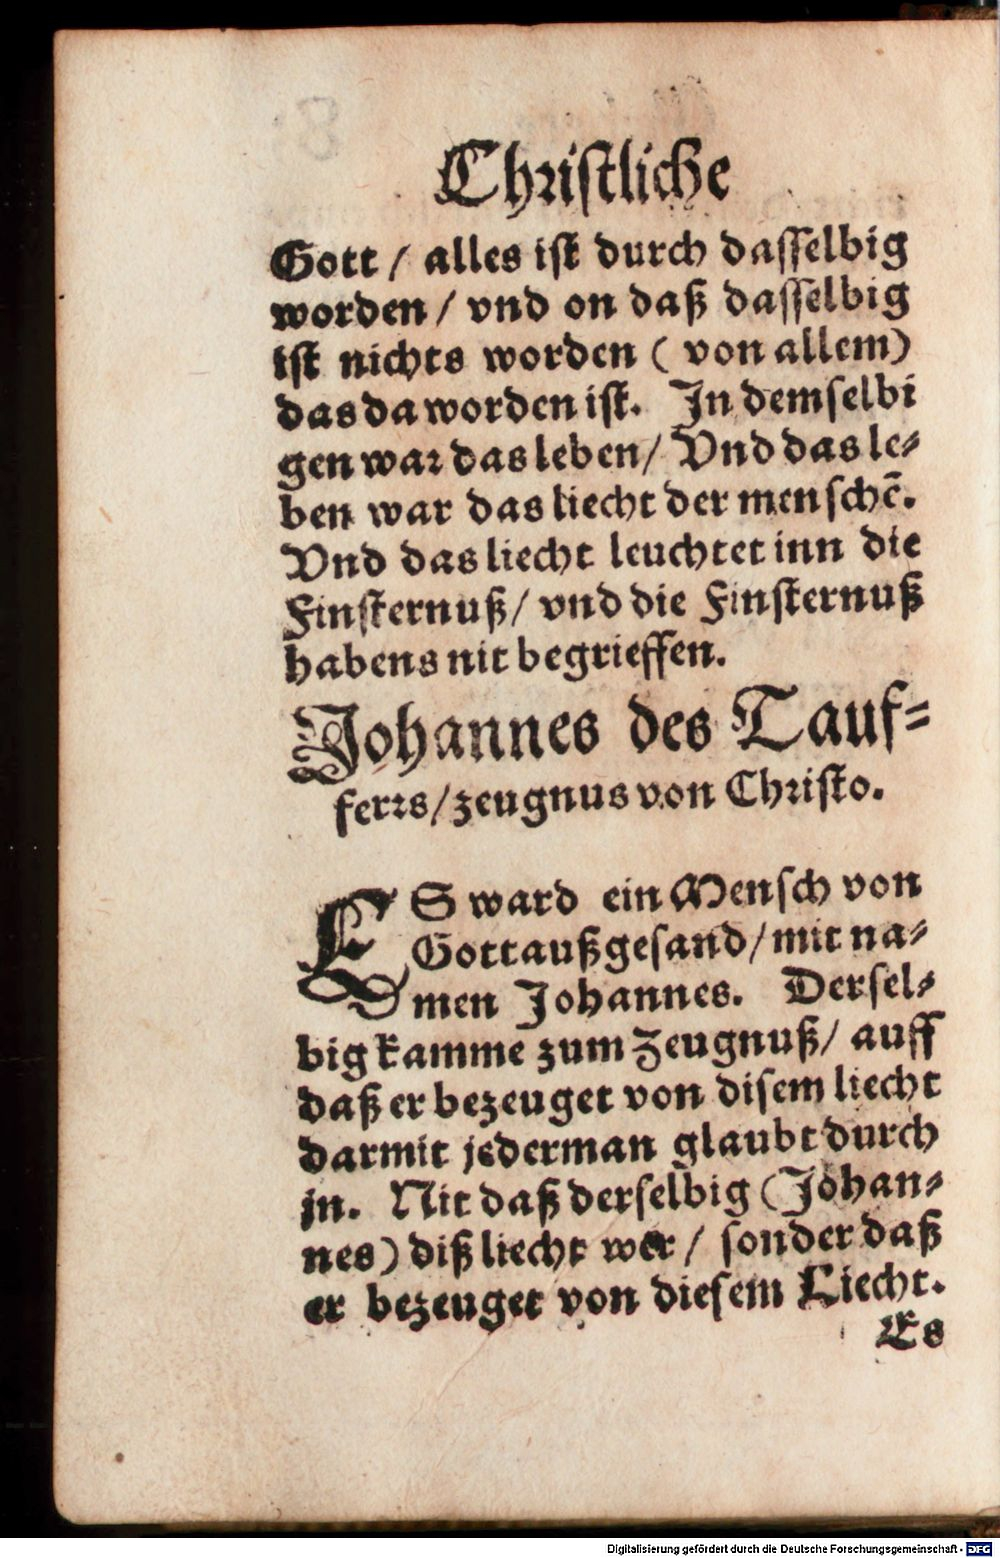 Christliche
Gott / alles ist durch dasselbig
worden / vnd on daß dasselbig
ist nichts worden ( von allem)
das da worden ist. In demselbi
gen war das leben / Vnd das le-
ben war das liecht der menschē.
Vnd das liecht leuchtet inn die
Finsternuß / vnd die Finsternuß
habens nit begrieffen.
Johannes des Tauf-
ferrs / zeugnus von Christo.
ES ward ein Mensch von
Gott außgesand / mit na-
men Johannes. Dersel-
big kamme zum Zeugnuß / auff
daß er bezeuget von disem liecht
darmit jederman glaubt durch
jn. Nit daß derselbig (Johan-
nes) diß liecht wer / sonder daß
er bezeuget von diesem Liecht.
Es
Digitalisierung gefördert durch die Deutsche Forschungsgemeinschaft - DFG